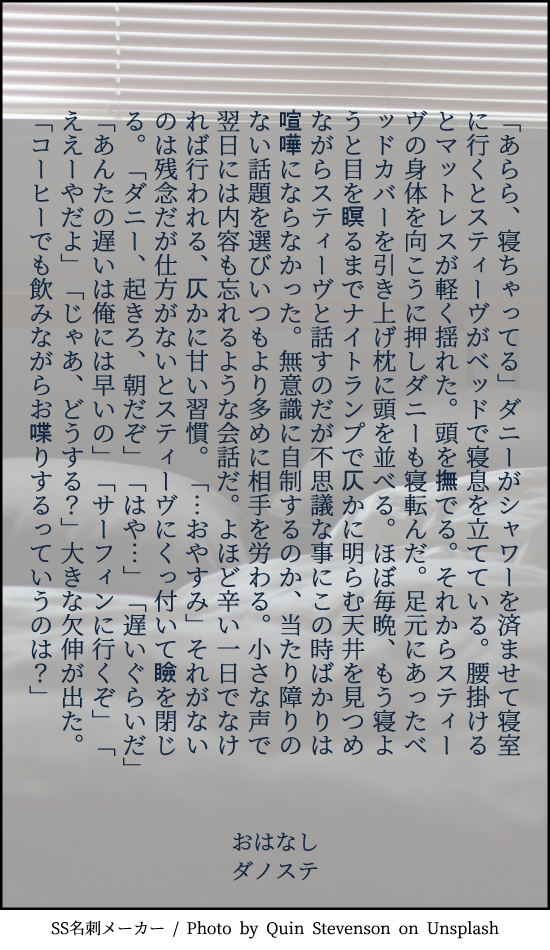 「あらら、寝ちゃってる」ダニーがシャワーを済ませて寝室
に行くとスティーヴがベッドで寝息を立てている。腰掛ける
とマットレスが軽く揺れた。頭を撫でる。それからスティー
ヴの身体を向こうに押しダニーも寝転んだ。足元にあったベ
ッドカバーを引き上げ枕に頭を並べる。ほぼ毎晩、もう寝よ
うと目を瞑るまでナイトランプで仄かに明らむ天井を見つめ
ながらスティーヴと話すのだが不思議な事にこの時ばかりは
喧嘩にならなかった。無意識に自制するのか、当たり障りの
ない話題を選びいつもより多めに相手を労わる。小さな声で
翌日には内容も忘れるような会話だ。よほど辛い一日でなけ
れば行われる、仄かに甘い習慣。「…おやすみ」それがない
のは残念だが仕方がないとスティーヴにくっ付いて瞼を閉じ
る。「ダニー、起きろ、朝だぞ」「はや…」「遅いぐらいだ」
「あんたの遅いは俺には早いの」「サーフィンに行くぞ」「
ええーやだよ」「じゃあ、どうする？」大きな欠伸が出た。
「コーヒーでも飲みながらお喋りするっていうのは？」
おはなし
ダノステ
SS名刺メーカー / Photo by Quin Stevenson on Unsplash